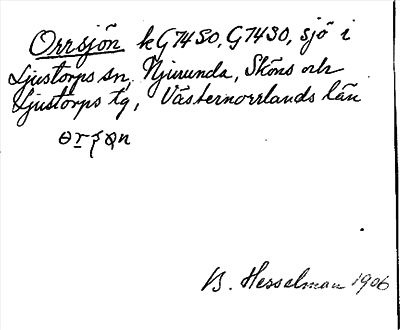 Orrsjön k G7450, G7430, sjö i
Ljustorps sn, Njurunda, Sköns och
Ljustorps tg, Västernorrlands län
B. Hesselman 1906